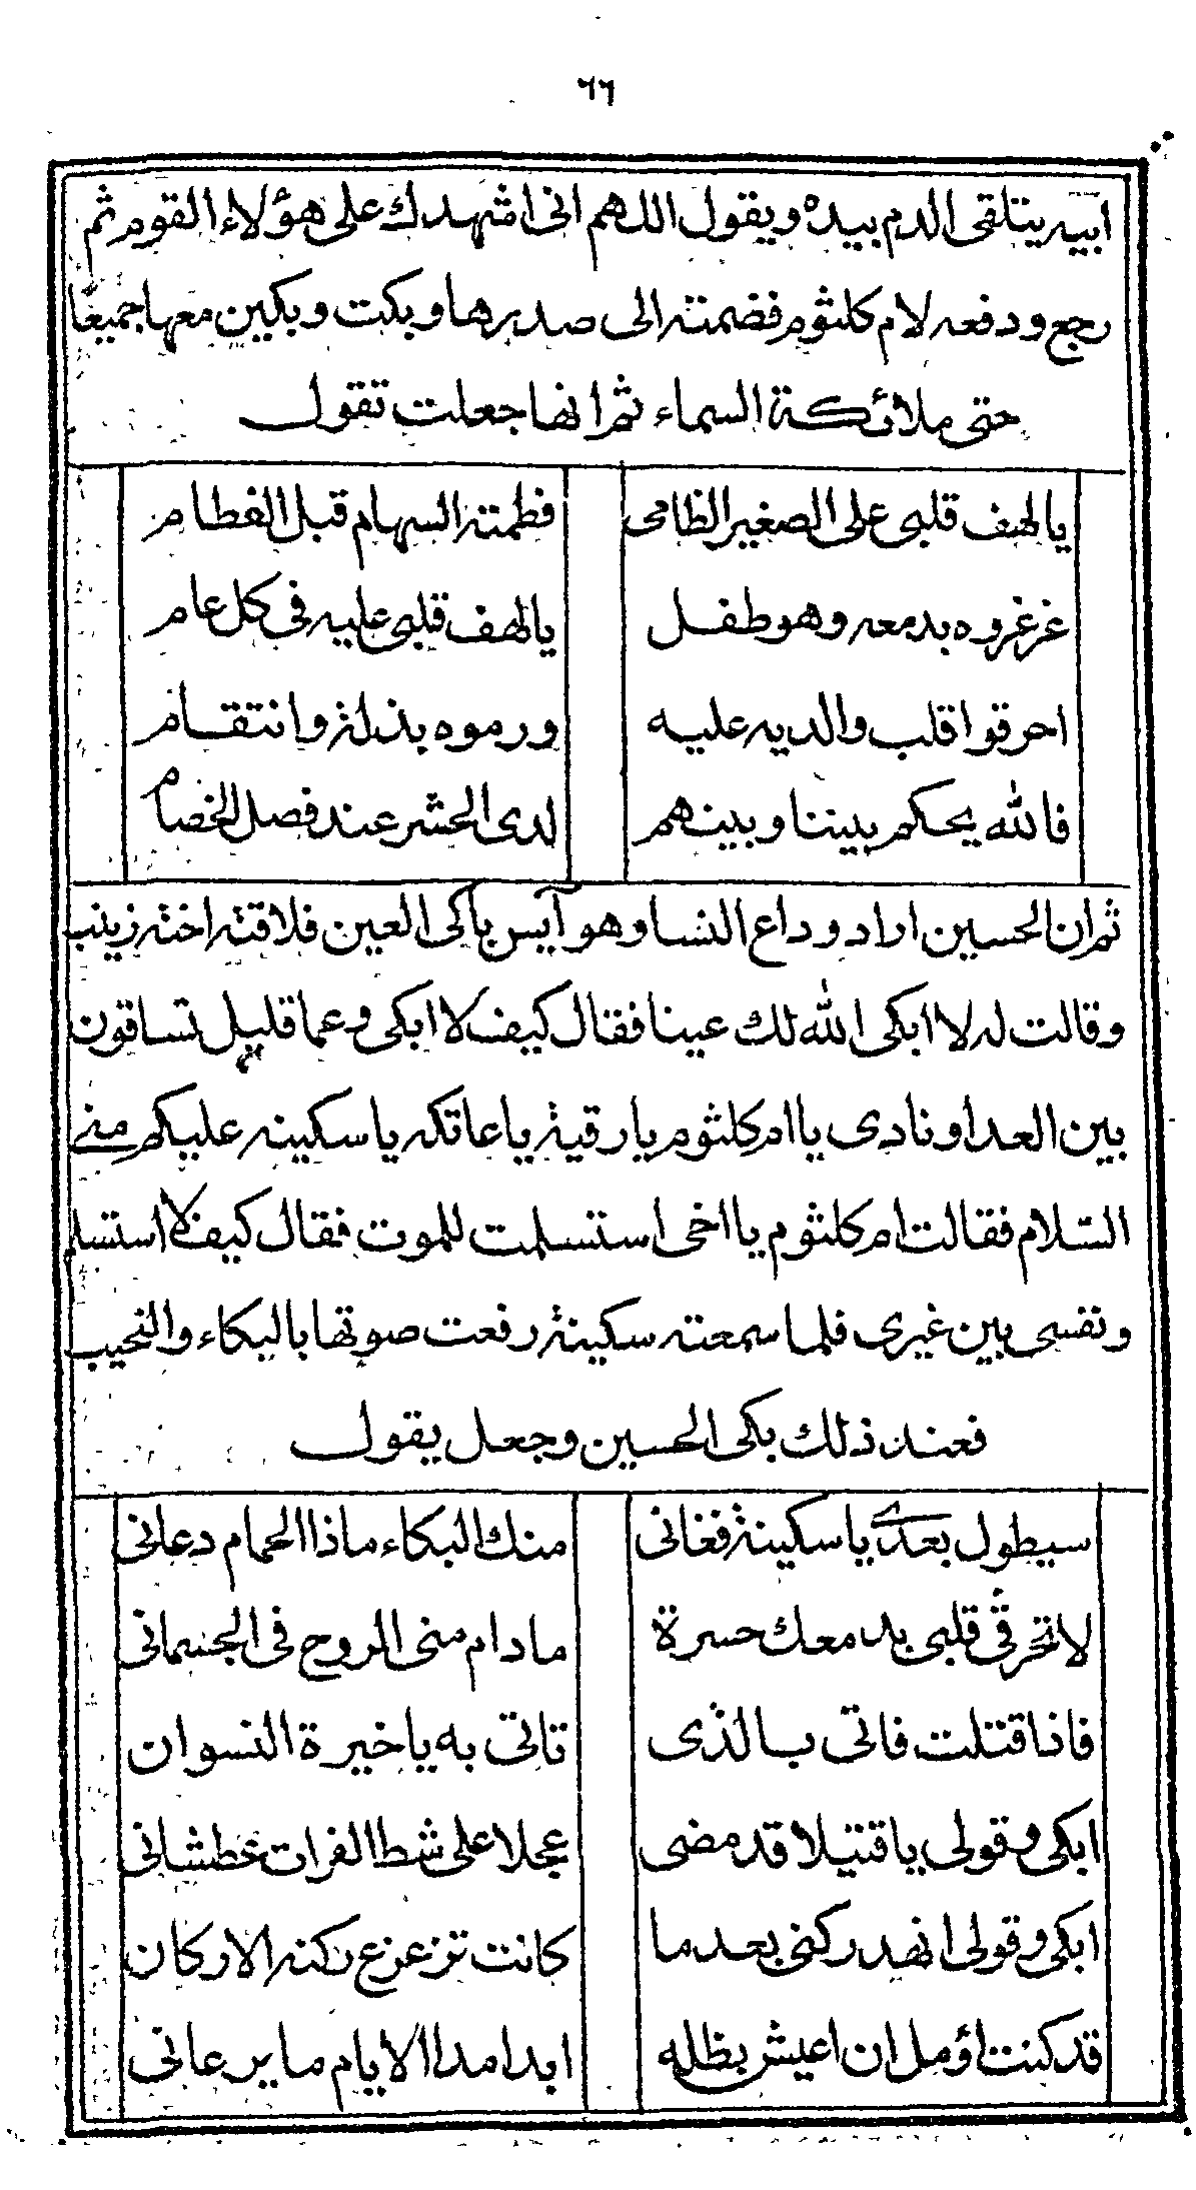 ٦٦
ابيه يتلقى الدم بيده ويقول اللهم انى اشهدك على هؤلاء القوم ثم
رجع ودفعه لام كلثوم فضمته الى صدرها وبكت وبكين معها جميعًا
حتى ملائكة السماء ثم انها جعلت تقول
يالهف قلبى على الصغير الظامى فطمته السهام قبل الفطام
غرغروه بدمعه وهو طفل يالهف قلبى عليه فى كل عام
احرقوا قلب والديه عليه ورموه بذلة وانتقام
فالله يحكم بيننا وبينهم لدى الحشر عند فصل الخصام
ثم ان الحسين اراد وداع النسا وهو آيس باكى العين فلاقته اخته زينب
وقالت له لا ابكى الله لك عينا فقال كيف لا ابكى وعما قليل تساقون
بين العدا ونادى ياام كلثوم يارقية ياعاتكه ياسكينه عليكم منى
السّلام فقالت ام كلثوم يااخى استسلمت للموت فقال كيف لا استسلم
ونفسى بين غيرى فلما سمعته سكينة رفعت صوتها بالبكاء والنحيب
فعند ذلك بكى الحسين وجعل يقول
سيطول بعدى ياسكينة فغانى منك البكاء ماذا الحمام دعانى
لاتحرقى قلبى بدمعك حسرة مادام منى الروح فى الجسمانى
فاذا قتلت فاتى بالذى تاتى به ياخيرة النسوان
ابكى وقولى ياقتيلا قد مضى عجلا على شط الفرات عطشانى
ابكى وقولى انهد ركنى بعدما كانت تزعزع ركنه الاركان
قد كنت اؤمل ان اعيش بظله ابدا مدا الايام ما يرعانى